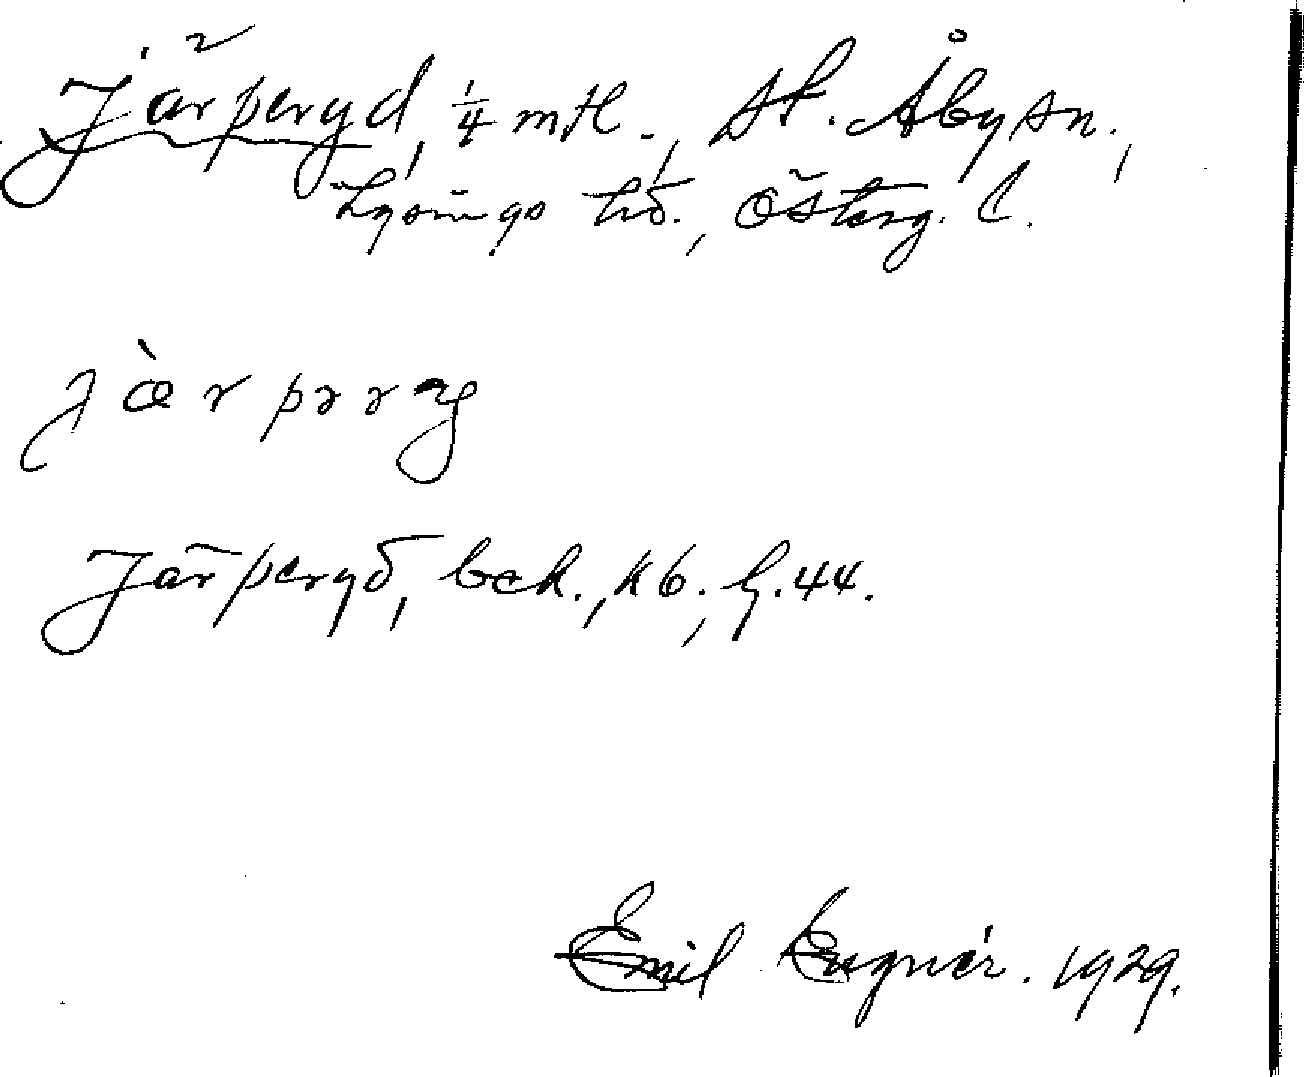 Järperyd, 1/4 mtl., St. Åby sn.,
Lysings hd., Österg. l.
jæ̀rpəry
Järperyd, bek., kb.,
Emil 1929.